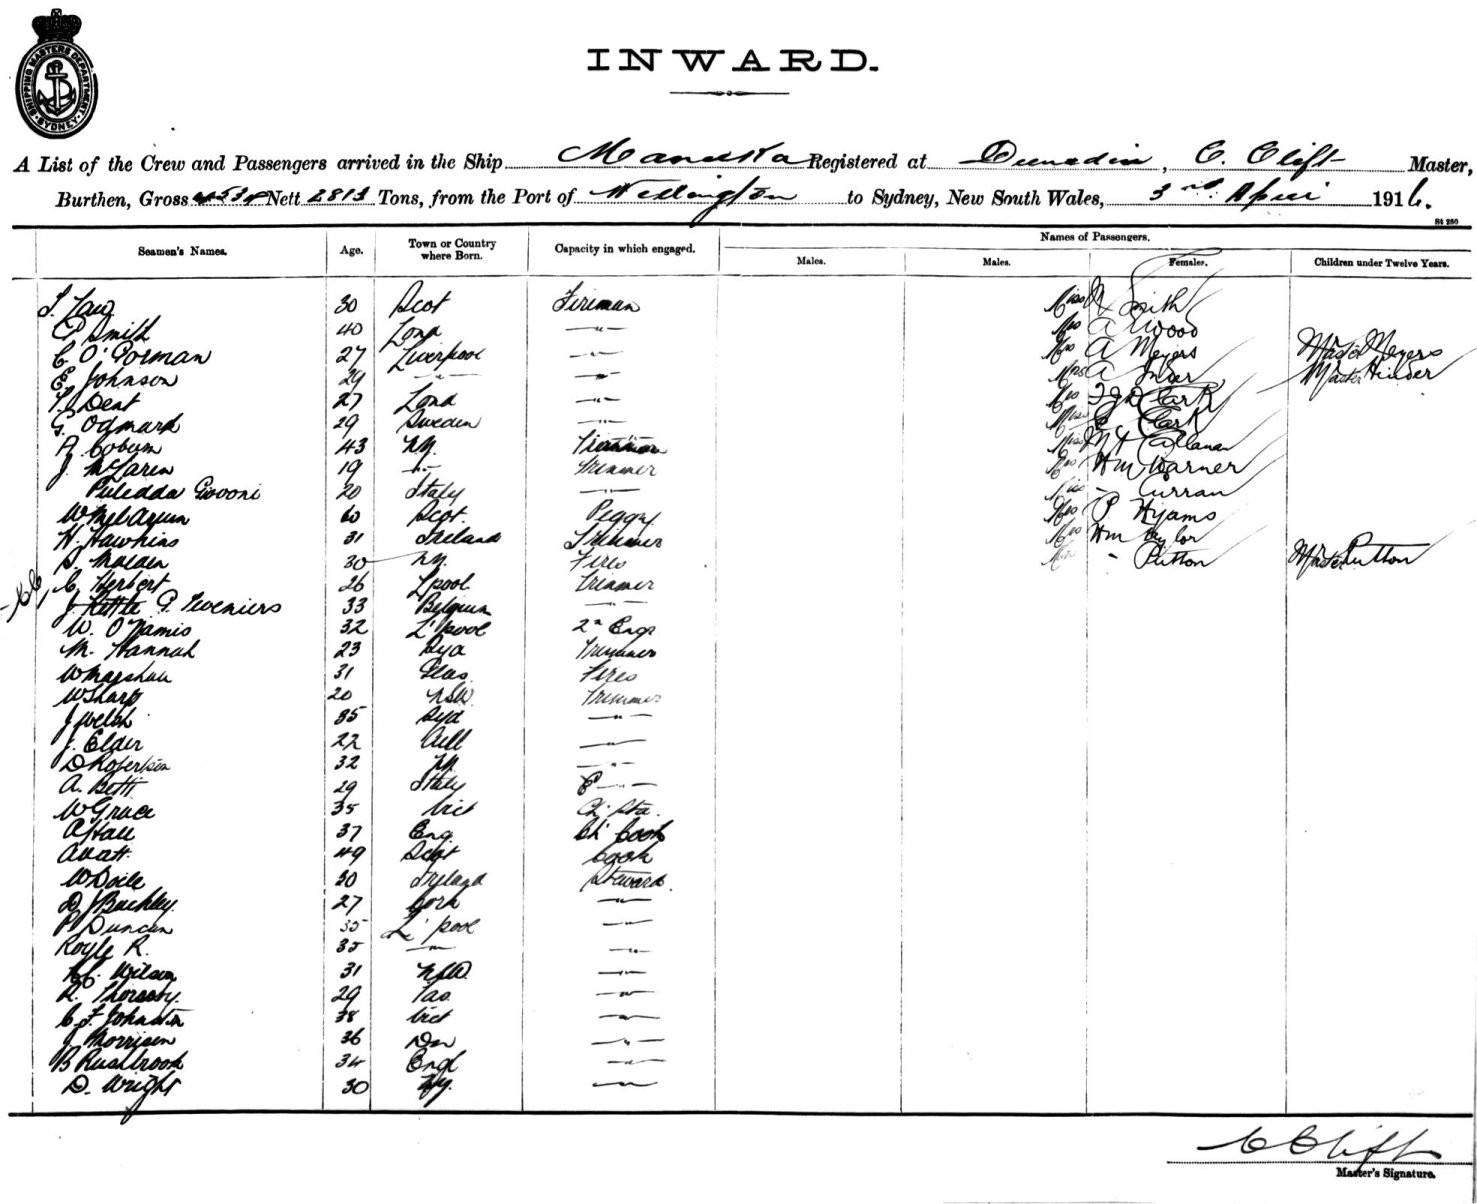 SHIPPING MASTERS DEPARTMENT SYDNEY
INWARD.
A List of the Crew and Passengers arrived in the Ship Manuka Registered at Dunedin, C. Clift Master,
Burthen, Gross 4534 Nett 2813 Tons, from the Port of Wellington to Sydney, New South Wales, 3rd April 1916.
Names of Passengers.
Seamen's Names. Age. Town or Country where Born. Capacity in which engaged. Males. Males. Females. Children under Twelve Years.
Law 30 Scot Fireman Miss Smith
Smith 40 Lond —"— Mrs A Wood
C. O'Gorman 27 Liverpool —"— Mrs A Meyers Master Meyers
E. Johnson 29 —"— —"— Mrs A Master Hinder
Dent 27 Lond —"— Mrs Clark
G. Odmark 29 Sweden —"— Miss Clark
A. Coburn 43 NZ. Miss M Callanan
J. McLaren 19 —"— Trimmer Mrs Wm Warner
Puledda Govoni 20 Italy —"— Miss - Curran
60 Scot. Peggy Mrs P. Hyams
H. Hawkins 31 Ireland Trimmer Mrs Wm Taylor
30 NZ. Fires - Putton Master Putton
C. Herbert 26 L'pool Trimmer
J. Kettle P. Teveniers 33 Belgium —"—
W. 32 L'pool 2n Engr
M. Hannah 23 Trimmer
W Marshall 31 Glas. Fires
W Sharp 20 NSW Trimmer
J Welsh 35 Syd —"—
J. Elder 22 —"—
D Robertson 32 NZ. —"—
A. Betti 29 Italy —"—
W Grace 35 Vict
A Hall 37 Eng. Ch' Cook
A Watt. 49 Scot Cook
W Doile 30 Ireland Steward.
D J Buckley. 27 Cork —"—
P Duncan 35 L'pool —"—
Royle R. 35 —"— —"—
Wilson 31 NSW. —"—
R. Thoresby. 29 Tas. —"—
C. F. Johnston 38 Vict —"—
J Morrison 36 Dn —"—
B Rushbrook 34 Engl —"—
D. Wright 30 NZ. —"—
C Clift
Master's Signature.